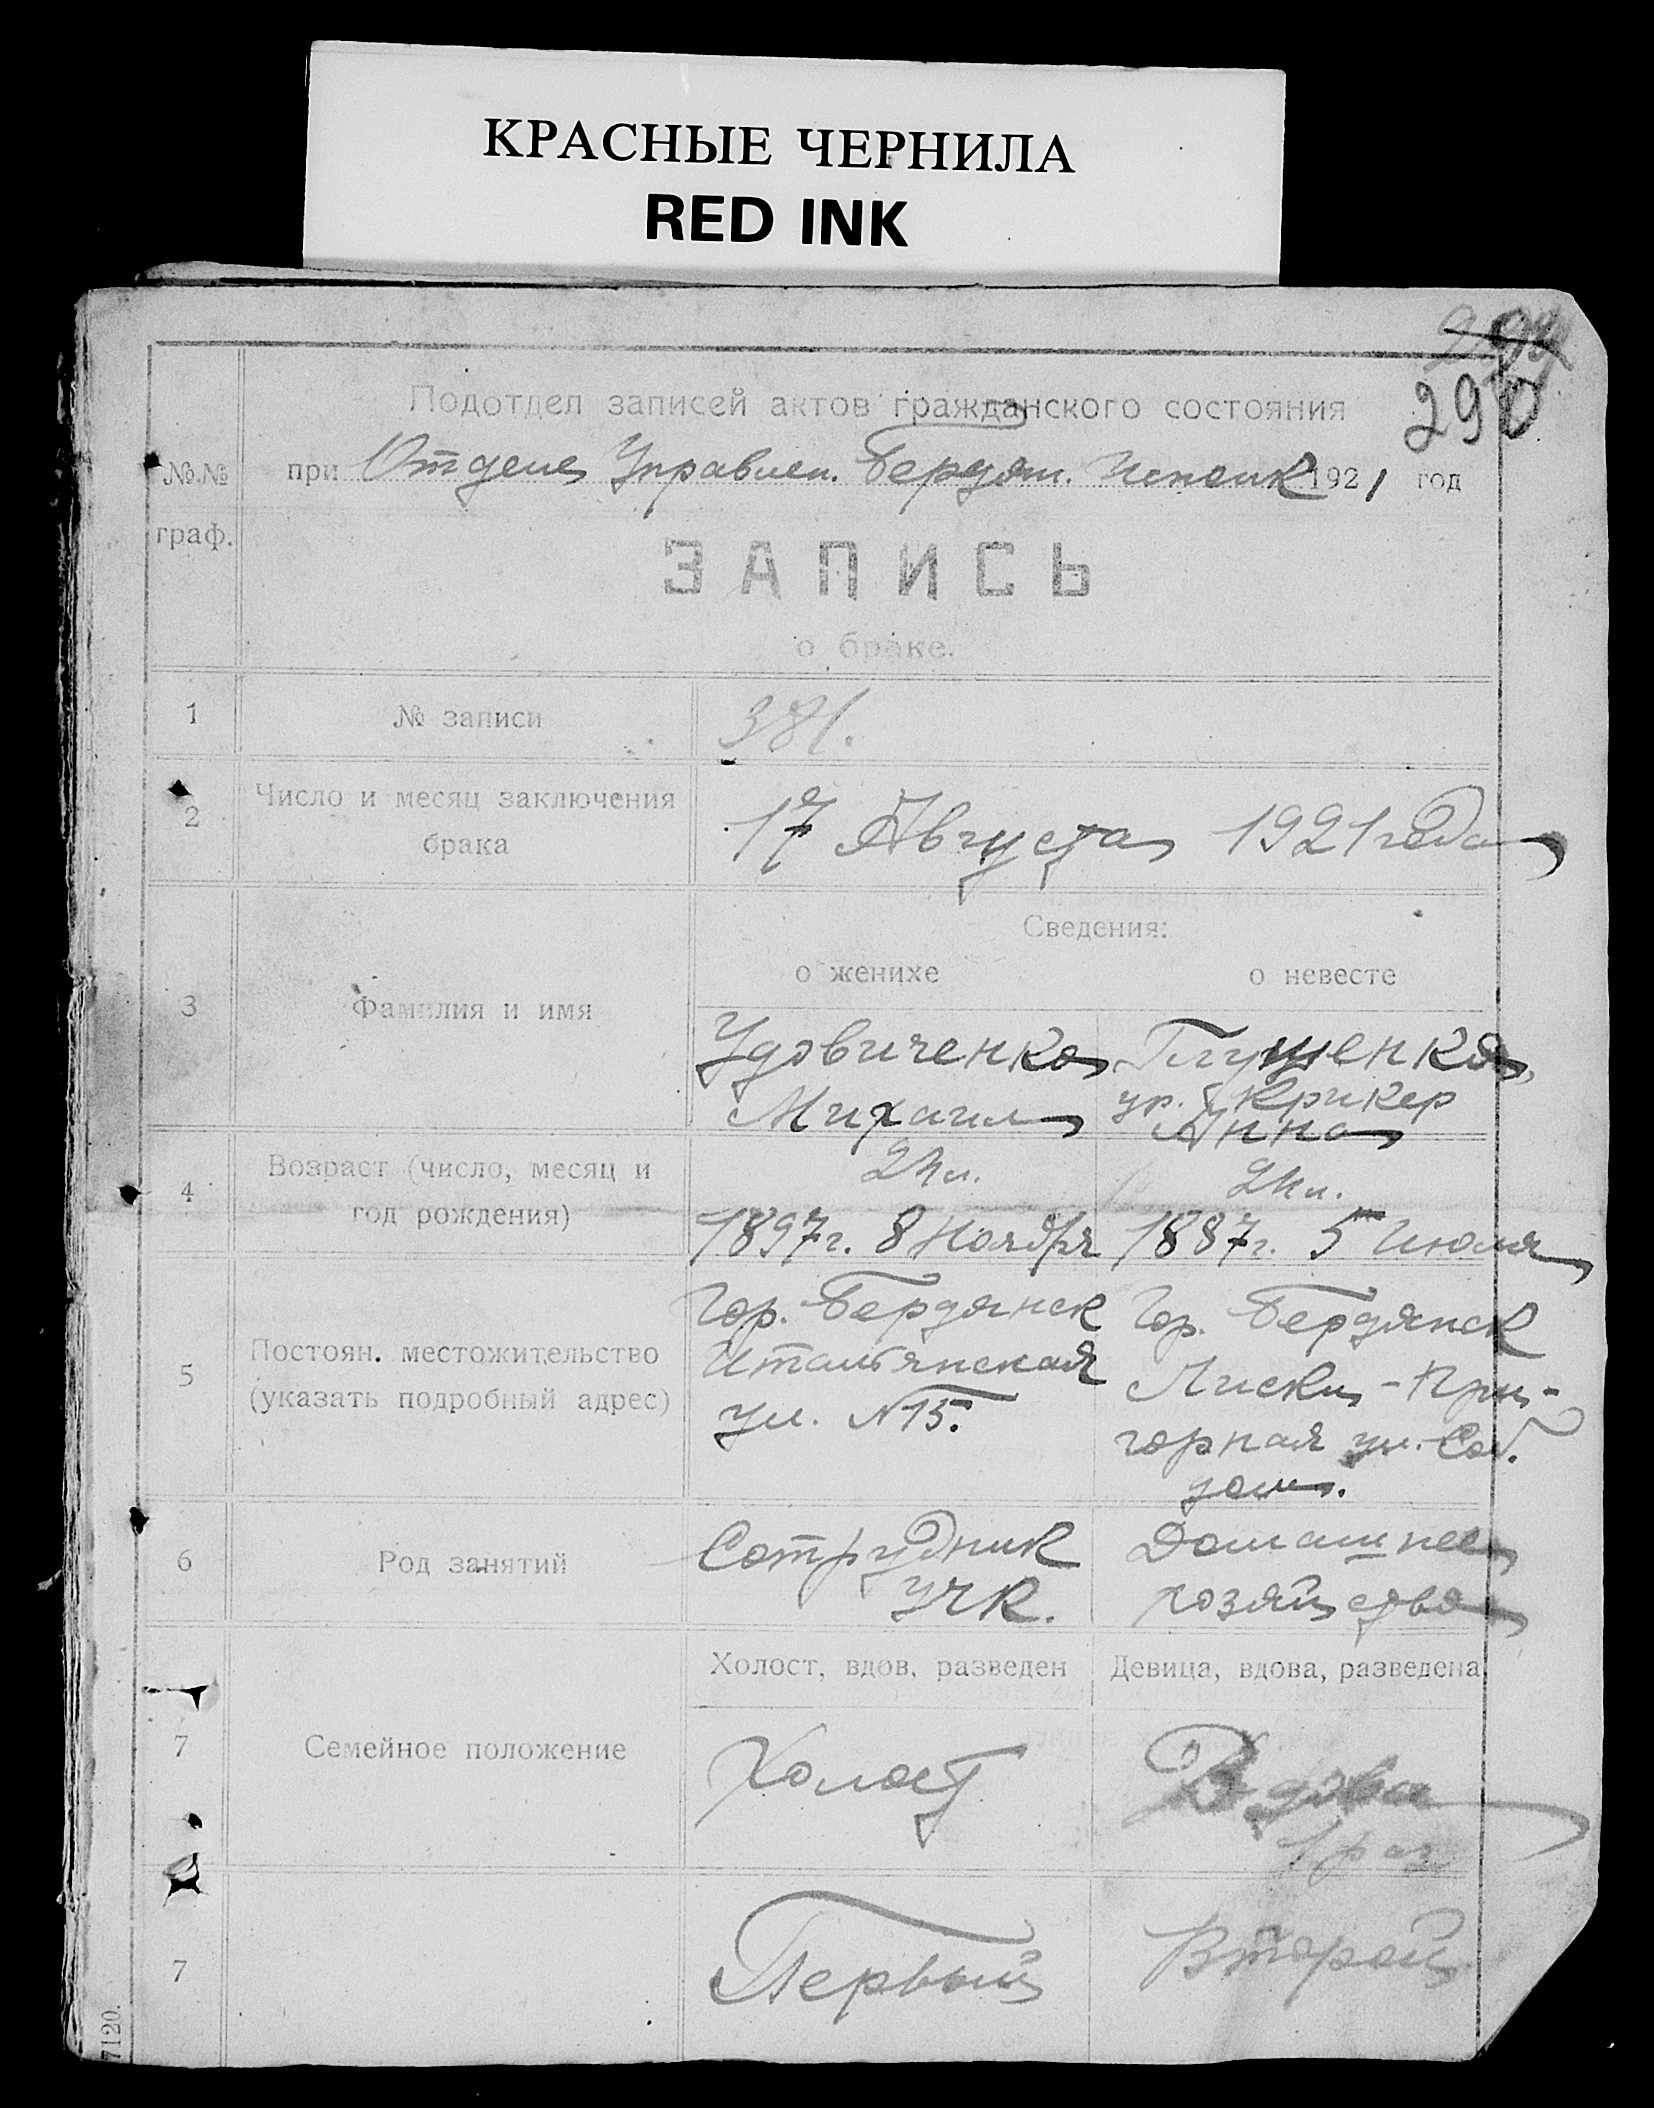 КРАСНЫЕ ЧЕРНИЛА
RED INK
290
Подотдел записей актов гражданского состояния
№.№ граф.
при Отделе Управлен. Бердян. Исполк 1921 год
ЗАПИСЬ
о браке.
1 № записи 381.
2 Число и месяц заключения брака 17 Августа 1921 года
Сведения:
о женихе о невесте
3 Фамилия и имя
Удовиченко
Михаил
Глущенко,
ур. Крикер
Анна
4 Возраст (число, месяц и год рождения)
24 л.
1897 г. 8 Ноября
24 л.
1887 г. 5 Июля
5 Постоян. местожительство (указать подробный адрес)
Гор. Бердянск
Итальянская
ул. N 15.
Гор. Бердянск
Лиски - При-
горная ул. Соб.
дом.
6 Род занятий
Сотрудник
УЧК.
Домашнее
хозяйство
Холост, вдов, разведен Девица, вдова, разведена
7 Семейное положение
Холост
Вдова
1 раз
7
Первый
Второй
7120.